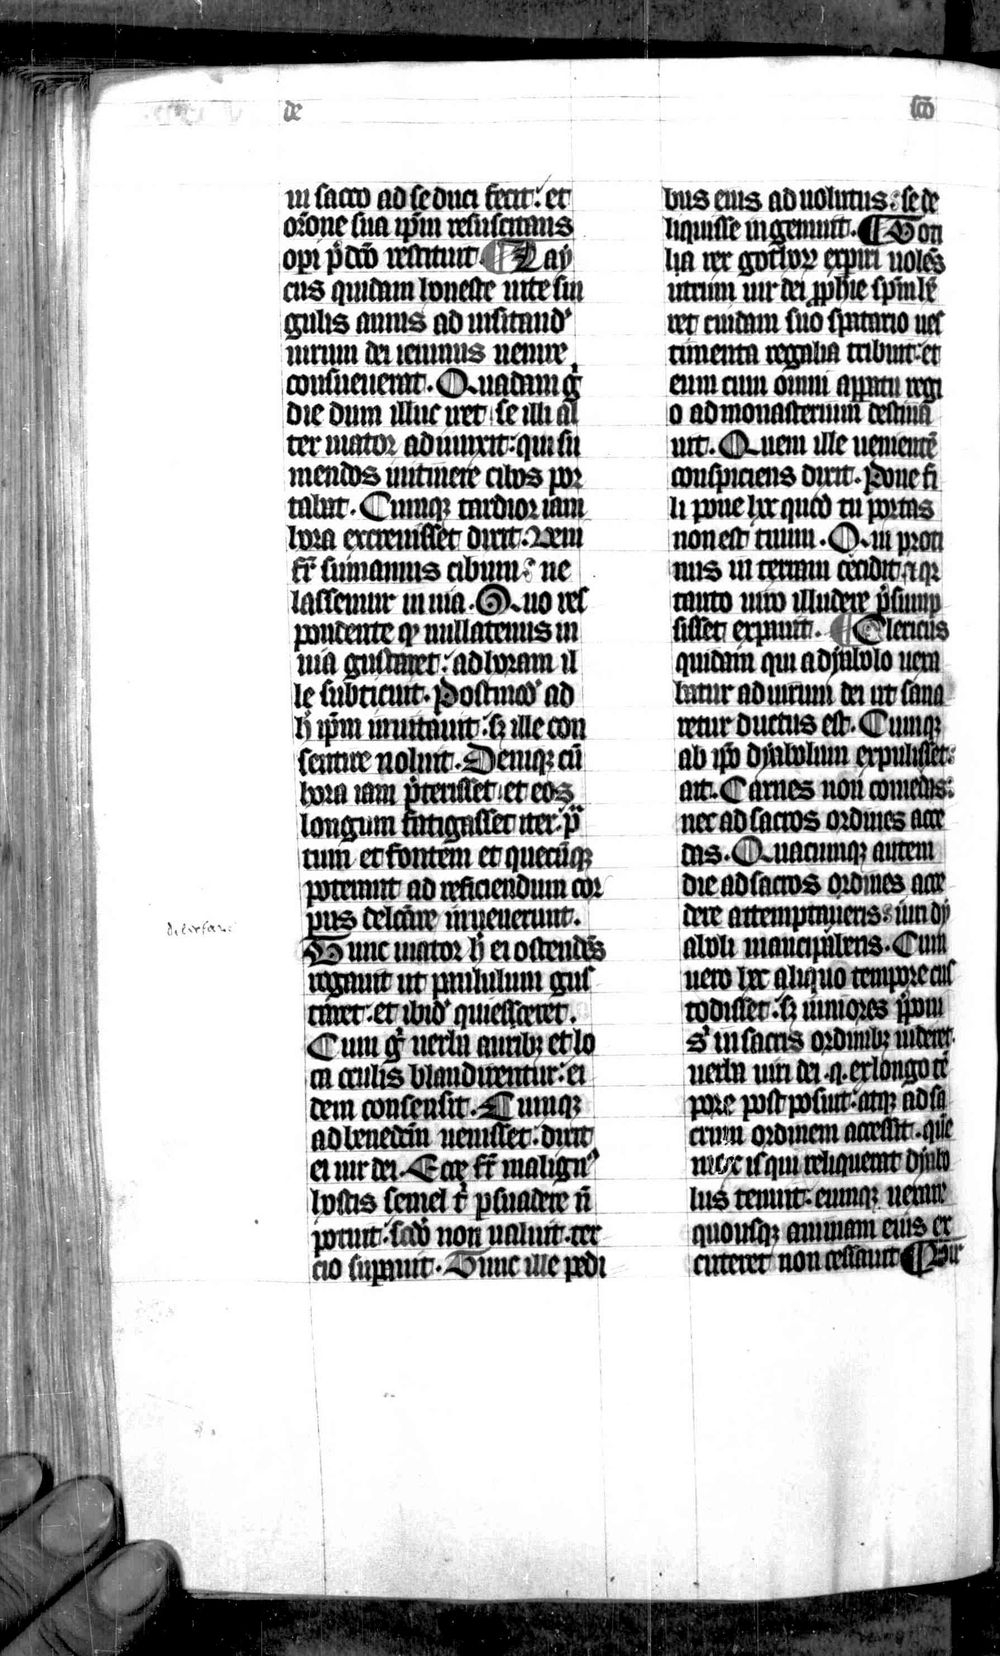 de
sc̄o
in sacco ad se duci fecit: et
or̄one sua ip̄m resuscitans
opi p̄dc̄o restituit. ¶ Lay
cus quidam honeste uite sin
gulis annis ad uisitand'
uirum dei ieiunus uenire
consueuerat. Quadam g̊
die dum illuc iret se illi al
ter uiator adiunxit: qui su
mendos initinere cibos por
tabat. Cumqꝫ tardior iam
hora excreuisset dixit. Veni
fr̄ sumamus cibum: ne
lassemur in uia. Quo res
pondente ꝙ nullatenus in
uia gustaret: ad horam il
le subticuit. Postmod' ad
h̄ ip̄m inuitauit: sꝫ ille con
sentire noluit. Deniqꝫ cū
hora iam p̄terisset et eos
longum fatigasset iter: p̄
tum et fontem et quecūqꝫ
poterant ad reficiendum cor
pus delc̄are inuenerunt.
Tunc uiator h̄ ei ostendēs
rogauit ut paululum gus
taret. et ibid' quiesceret.
Cum g̊ uerba auribꝫ et lo
ca oculis blandirentur: ei
dem consensit. Cumqꝫ
ad benedc̄m uenisset: dixit
ei uir dei. Ecce fr̄ malign'
hostis semel t' p̄suadere n̄
potuit: scd'o non ualuit. ter
cio supauit. Tunc ille pedi
bus eius aduolutus: se de
liquisse ingemuit. ¶ Ton
tila rex gothoꝝ expiri uolēs
utrum uir dei ꝓphie sp̄m hē
ret cuidam suo spatario ues
timenta regalia tribuit: et
eum cum omni apparatu regi
o ad monasterium destina
uit. Quem ille uenientē
conspiciens dixit. Pone fi
li pone hoc quod tu portas
non est tuum. Qui proti
nus in terram cecidit: qꝛ
tanto uiro illudere p̄sump
sisset expauit. ¶ Clericus
quidam qui a dyabolo uexa
batur ad uirum dei ut sana
retur ductus est. Cumqꝫ
ab ip̄o dyabolum expulisset:
ait. Carnes non comedas:
nec ad sacros ordines acce
das. Quacumqꝫ autem
die ad sacros ordines acce
dere attemptaueris: iuri dy
aboli manciperis. Cum
uero hoc aliquo tempore cus
todisset: sꝫ iuniores p̄poni
s' in sacris ordinibꝫ uideret.
uerba uiri dei .q. ex longo tē
pore postposuit: atqꝫ ad sa
crum ordinem accessit. quē
mox is qui reliquerat dyabo
lus tenuit: eumqꝫ uexare
quousqꝫ animam eius ex
cuteret non cessauit ¶ Vir